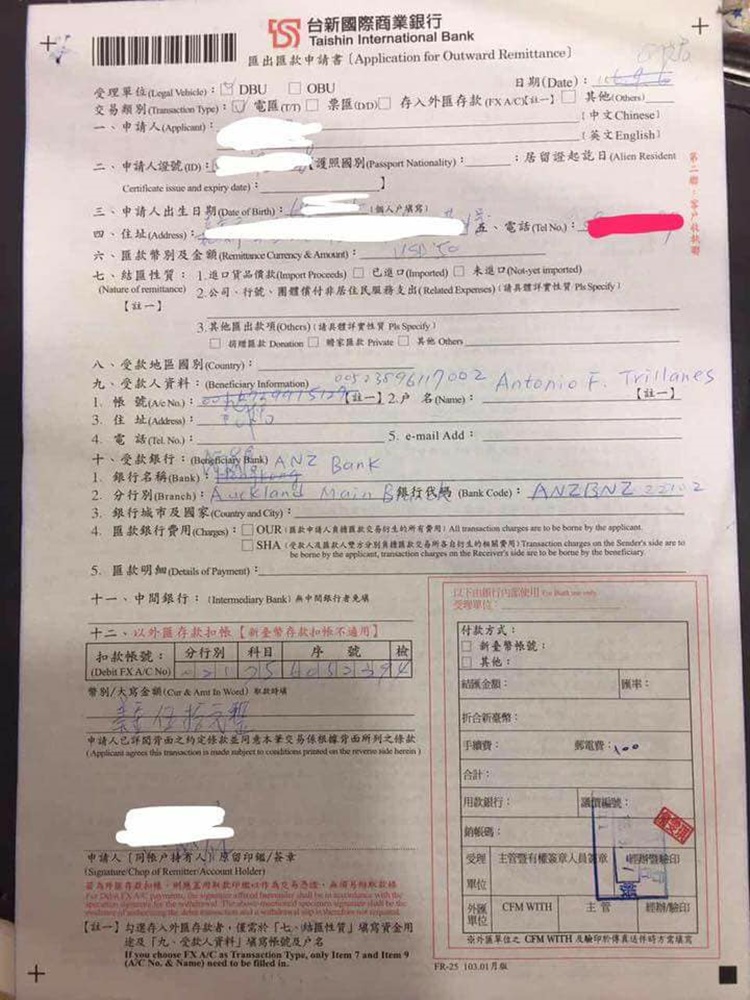 台新國際商業銀行
Taishin International Bank
匯出匯款申請書〔Application for Outward Remittance〕
受理單位(Legal Vehicle)： DBU □ OBU 日期(Date)：
交易類別(Transaction Type)： 電匯(T/T) □ 票匯(D/D) □ 存入外匯存款(FX A/C)【註一】 □ 其他(Others)
一、申請人(Applicant)： (中文Chinese)
(英文English)
二、申請人證號(ID)： 【護照國別(Passport Nationality)： ；居留證起訖日(Alien Resident
Certificate issue and expiry date)： 】
三、申請人出生日期(Date of Birth)： (個人戶填寫)
四、住址(Address)： 號 五、電話(Tel No.)：
六、匯款幣別及金額(Remittance Currency & Amount)： USD 50
七、結匯性質： 1.進口貨品價款(Import Proceeds) □ 已進口(Imported) □ 未進口(Not-yet imported)
(Nature of remittance) 2.公司、行號、團體償付非居住民服務支出(Related Expenses) (請具體詳實性質 Pls Specify)
【註一】
3.其他匯出款項(Others) (請具體詳實性質 Pls Specify)
□ 捐贈匯款 Donation □ 贍家匯款 Private □ 其他 Others
八、受款地區國別(Country)：
九、受款人資料：(Beneficiary Information) 00523596117002 Antonio F. Trillanes
1. 帳 號(A/c No.)： 【註一】 2.戶 名(Name)： 【註一】
3. 住 址(Address)：
4. 電 話(Tel. No.)： 5. e-mail Add：
十、受款銀行：(Beneficiary Bank) ANZ Bank
1. 銀行名稱(Bank)：
2. 分行別(Branch)： Auckland Main B 銀行代碼 (Bank Code)： ANZBNZ 22102
3. 銀行城市及國家(Country and City)：
4. 匯款銀行費用(Charges)： □ OUR (匯款申請人負擔匯款交易衍生的所有費用) All transaction charges are to be borne by the applicant.
□ SHA (受款人及匯款人雙方分別負擔匯款交易所各自衍生的相關費用) Transaction charges on the Sender's side are to
be borne by the applicant, transaction charges on the Receiver's side are to be borne by the beneficiary.
5. 匯款明細(Details of Payment)：
十一、中間銀行：(Intermediary Bank) 無中間銀行者免填
十二、以外匯存款扣帳【新臺幣存款扣帳不適用】
扣款帳號： 分行別 科目 序 號 檢
(Debit FX A/C No)
幣別/大寫金額(Cur & Amt In Word) 取款時填
美金伍拾元整
申請人已詳閱背面之約定條款並同意本筆交易係根據背面所列之條款
(Applicant agrees this transaction is made subject to conditions printed on the reverse side herein)
申請人（同帳戶持有人）原留印鑑/簽章
(Signature/Chop of Remitter/Account Holder)
【註一】勾選存入外匯存款者，僅需於「七、結匯性質」填寫資金用
途及「九、受款人資料」填寫帳號及戶名
If you choose FX A/C as Transaction Type, only Item 7 and Item 9
(A/C No. & Name) need to be filled in.
第二聯：客戶收執聯
以下由銀行內部使用 For Bank use only
受理單位
付款方式：
□ 新臺幣帳號：
□ 其他：
結匯金額： 匯率：
折合新臺幣：
手續費： 郵電費：
合計：
用款銀行： 議價編號：
銷帳碼：
受理 主管暨有權簽章人員簽章 經辦暨驗印
單位
外匯 CFM WITH 主 管 經辦/驗印
單位
※外匯單位之 CFM WITH 及驗印於傳真送件時方需填寫
FR-25 103.01月版